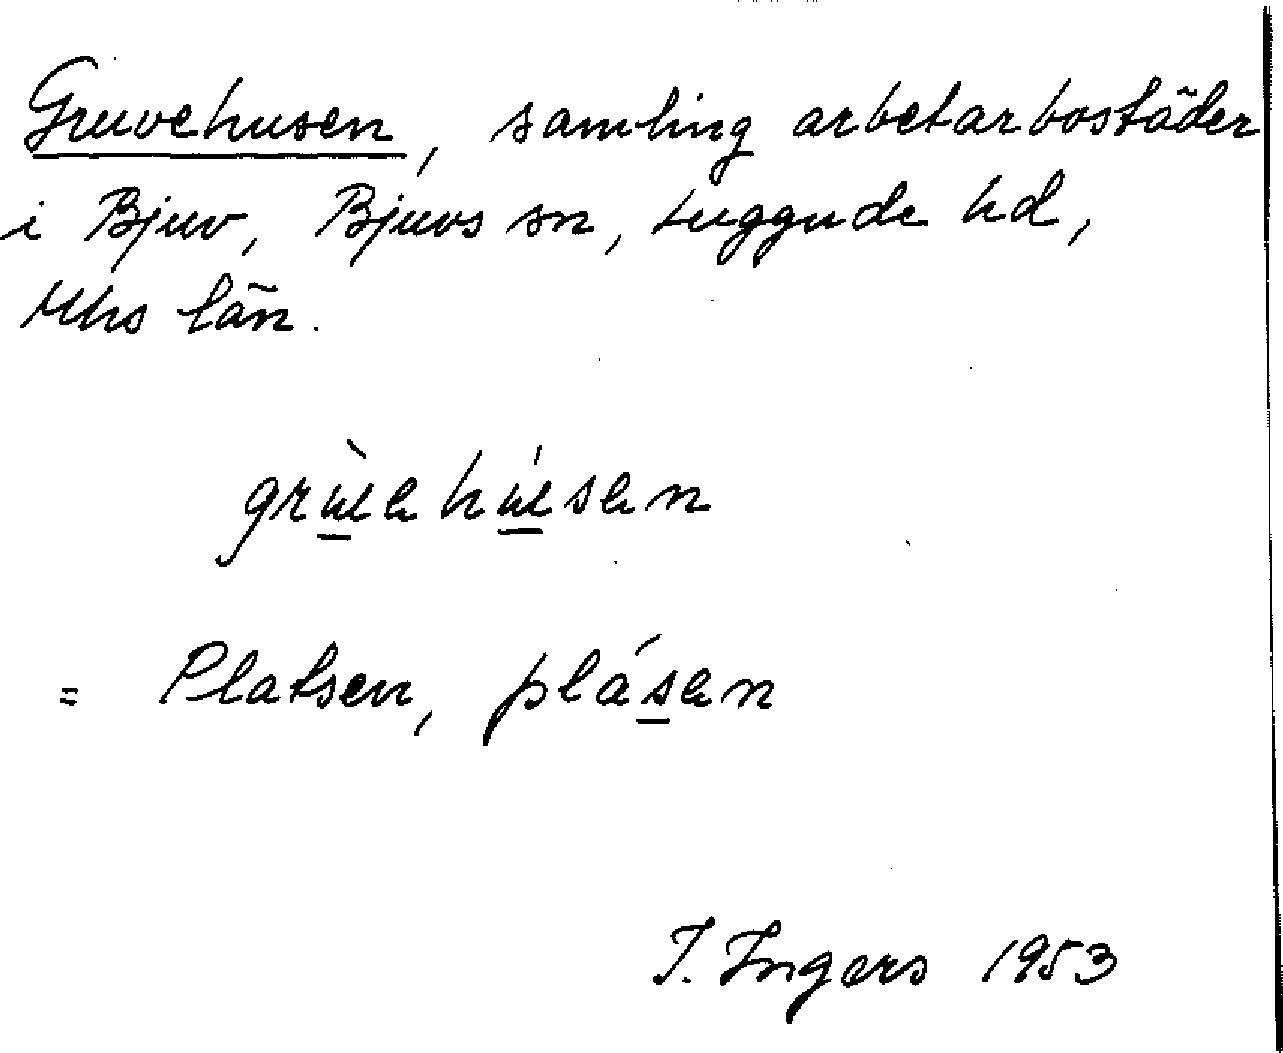 Gruvehusen, samling arbetarbostäder
i Bjuv, Bjuvs sn, Luggude hd,
Mhs län.
grùehúsen
= Platsen, plásen
I. Ingers 1953